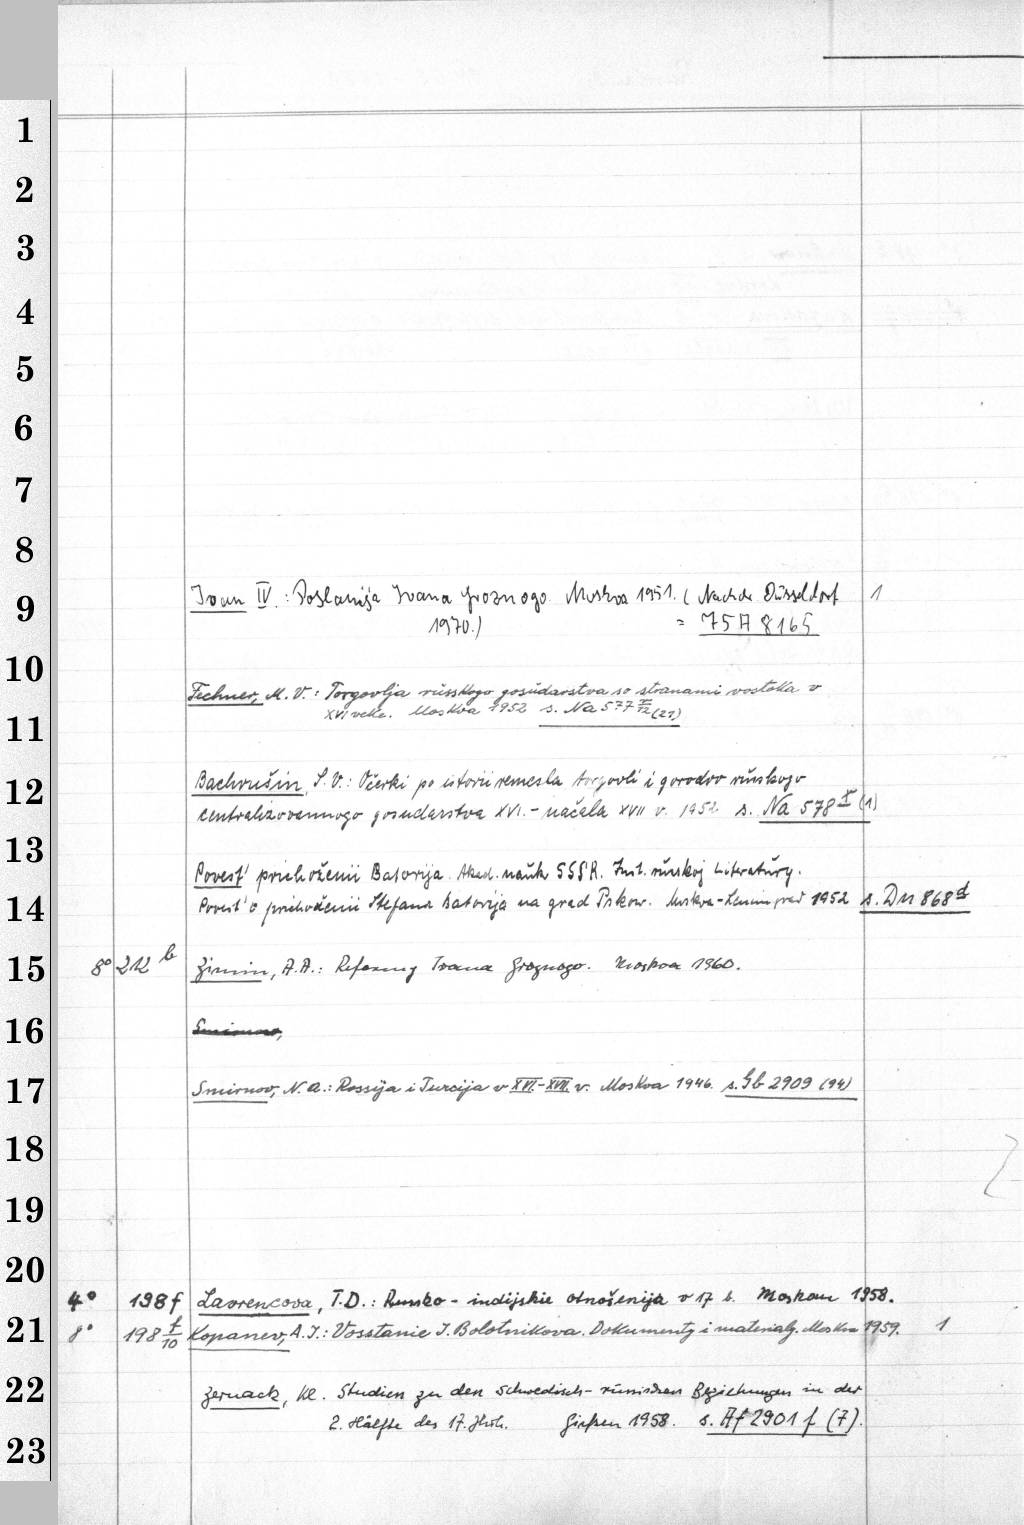 1
2
3
4
5
6
7
8
9
10
11
12
13
14
15
16
17
18
19
20
21
22
23
Ivan IV.: Poslanija Ivana Groznogo. Moskva 1951. (Nachdr. Düsseldorf 1
1970.) = 75 A 8165
Fechner, M. V.: Torgovlja russkogo gosudarstva so stranami vostoka v
XVI veke. Moskva 1952 s. Na 577 (21)
Bachrušin, S. V.: Očerki po istorii remesla torgovli i gorodov russkogo
centralizovannogo gosudarstva XVI.- načala XVII v. 1952 s. Na 578 (1)
Povest' prichoženii Batorija. Akad. nauk SSSR. Inst. russkoj Literatury.
Povest' o prichoženii Stefana Batorija na grad Pskow. Moskva-Leningrad 1952 s. Dn 868 d
8° 212 b Zimin, A. A.: Reformy Ivana Groznogo. Moskva 1960.
Smirnov,
Smirnov, N. A.: Rossija i Turcija v XVI.-XVII. v. Moskva 1946. s. Gb 2909 (94)
4° 198 f Lavrencova, T. D.: Russko-indijskie otnošenija v 17 v. Moskau 1958.
8° 198 f/10 Kopanev, A. I.: Vosstanie I. Bolotnikova. Dokumenty i materialy. Moskva 1959. 1
Zernack, Kl. Studien zu den schwedisch-russischen Beziehungen in der
2. Hälfte des 17. Jhdt. Gießen 1958. s. Af 2901 f (7).